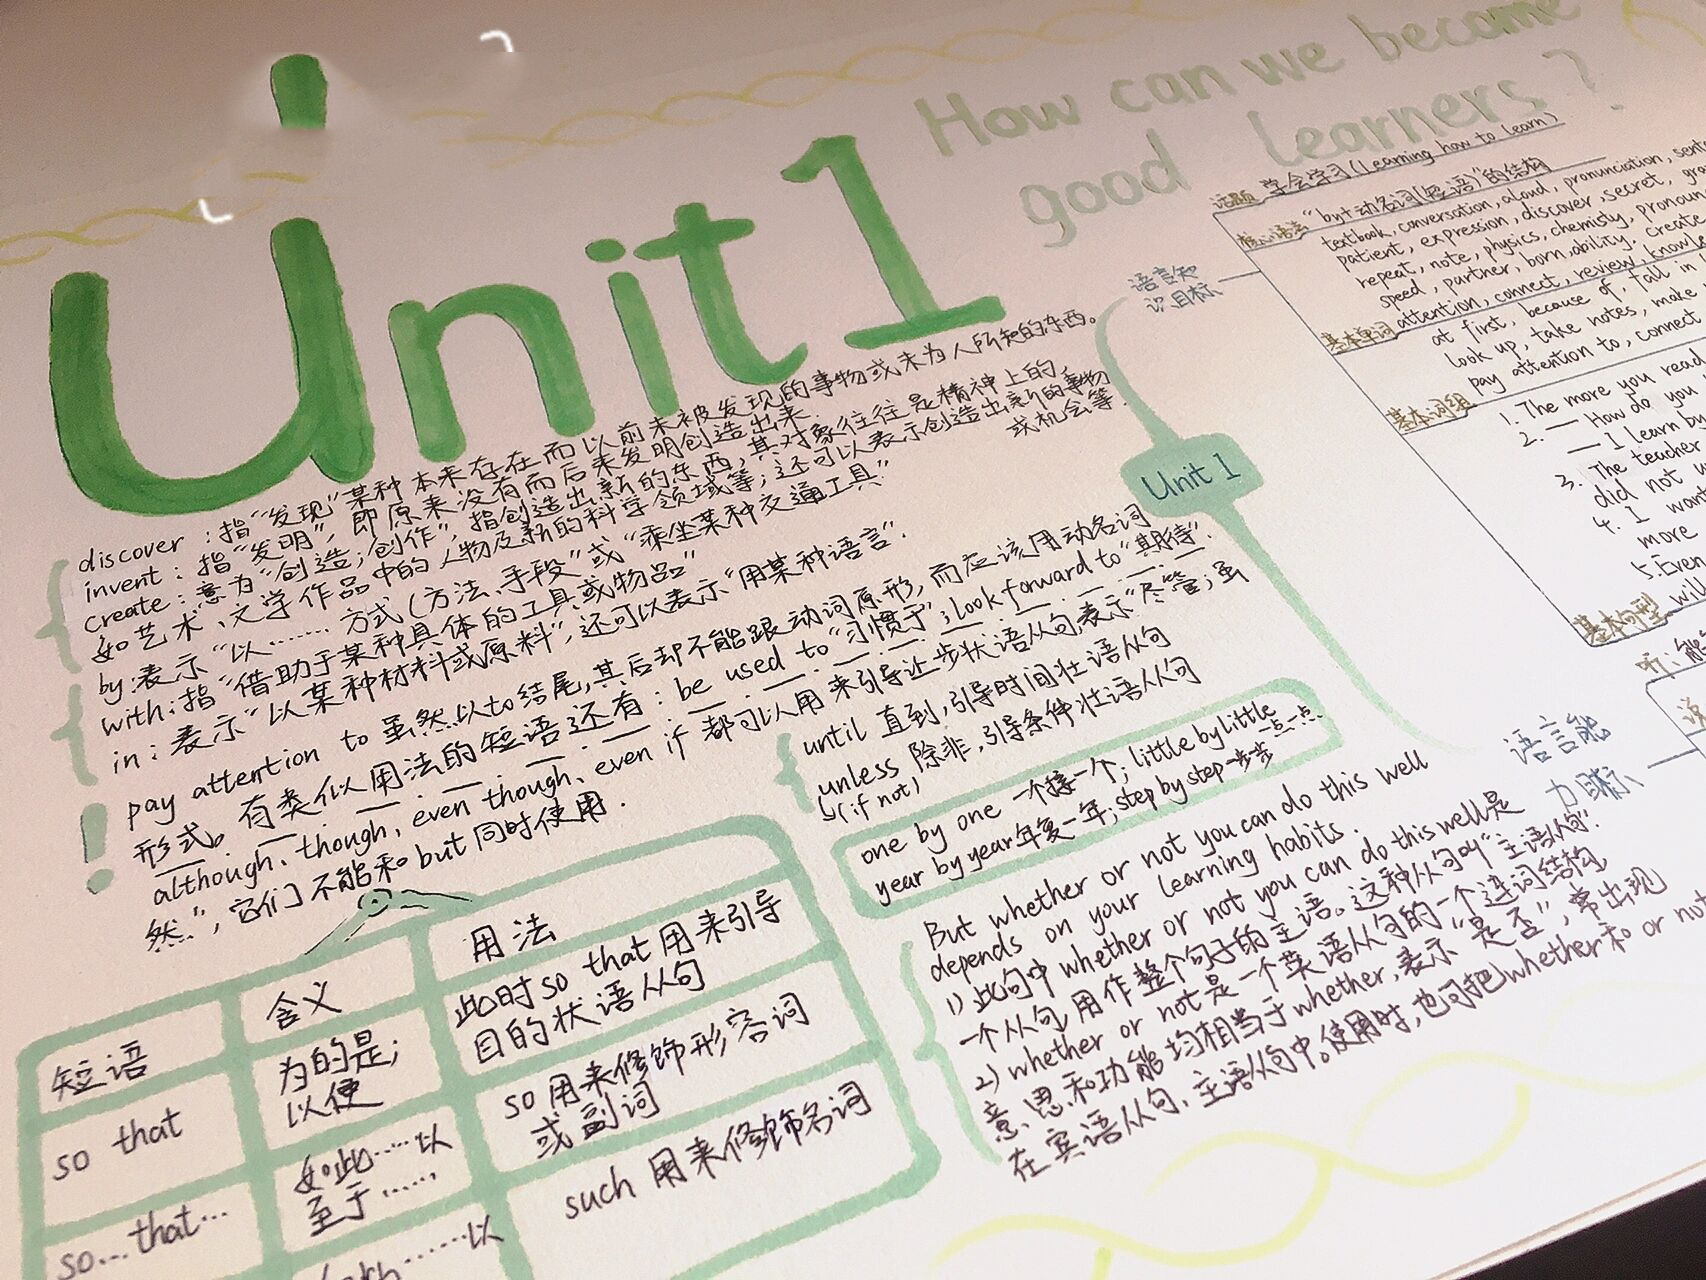 Unit 1
How can we become
good learners?
discover：指“发现”某种本来存在而以前未被发现的事物或未为人所知的东西。
invent：指“发明”，即原来没有而后来发明创造出来.
create：意为“创造；创作”，指创造出新的东西，其对象往往是精神上的，
如艺术、文学作品中的人物及新的科学领域等；还可以表示创造出新的事物
或机会等.
by：表示“以……方式（方法、手段”或“乘坐某种交通工具”
with：指“借助于某种具体的工具或物品”
in：表示“以某种材料或原料”，还可以表示“用某种语言”.
pay attention to 虽然以to结尾，其后却不能跟动词原形，而应该用动名词
形式。有类似用法的短语还有：be used to“习惯于”；look forward to“期待”.
although、though、even though、even if 都可以用来引导让步状语从句，表示“尽管；虽
然”，它们不能和but同时使用.
until 直到，引导时间壮语从句
unless 除非，引导条件壮语从句
↳(if not)
one by one 一个接一个；little by little 一点一点
year by year年复一年；step by step一步步
But whether or not you can do this well
depends on your learning habits.
1）此句中 whether or not you can do this well是
一个从句，用作整个句子的主语。这种从句叫“主语从句”.
2）whether or not 是一个英语从句的一个连词结构，
意思和功能均相当于whether，表示“是否”，常出现
在宾语从句、主语从句中。使用时，也可把whether和or not
短语
含义
用法
so that
为的是；
以便
此时so that用来引导
目的状语从句
so…that…
如此……以
至于……
so用来修饰形容词
或副词
……以
such 用来修饰名词
Unit 1
语言知
识目标
话题 学会学习(Learning how to learn)
核心语法 “by+动名词(短语)”的结构
textbook, conversation, aloud, pronunciation,
patient, expression, discover, secret,
repeat, note, physics, chemisty,
speed, partner, born, ability, create
基本单词 attention, connect, review,
at first, because of, fall in
look up, take notes, make
基本词组 pay attention to, connect
1. The more you read
2. — How do you
— I learn by
3. The teacher
did not
4. I
more
5. Even
基本句型 will
语言能
力目标
听：